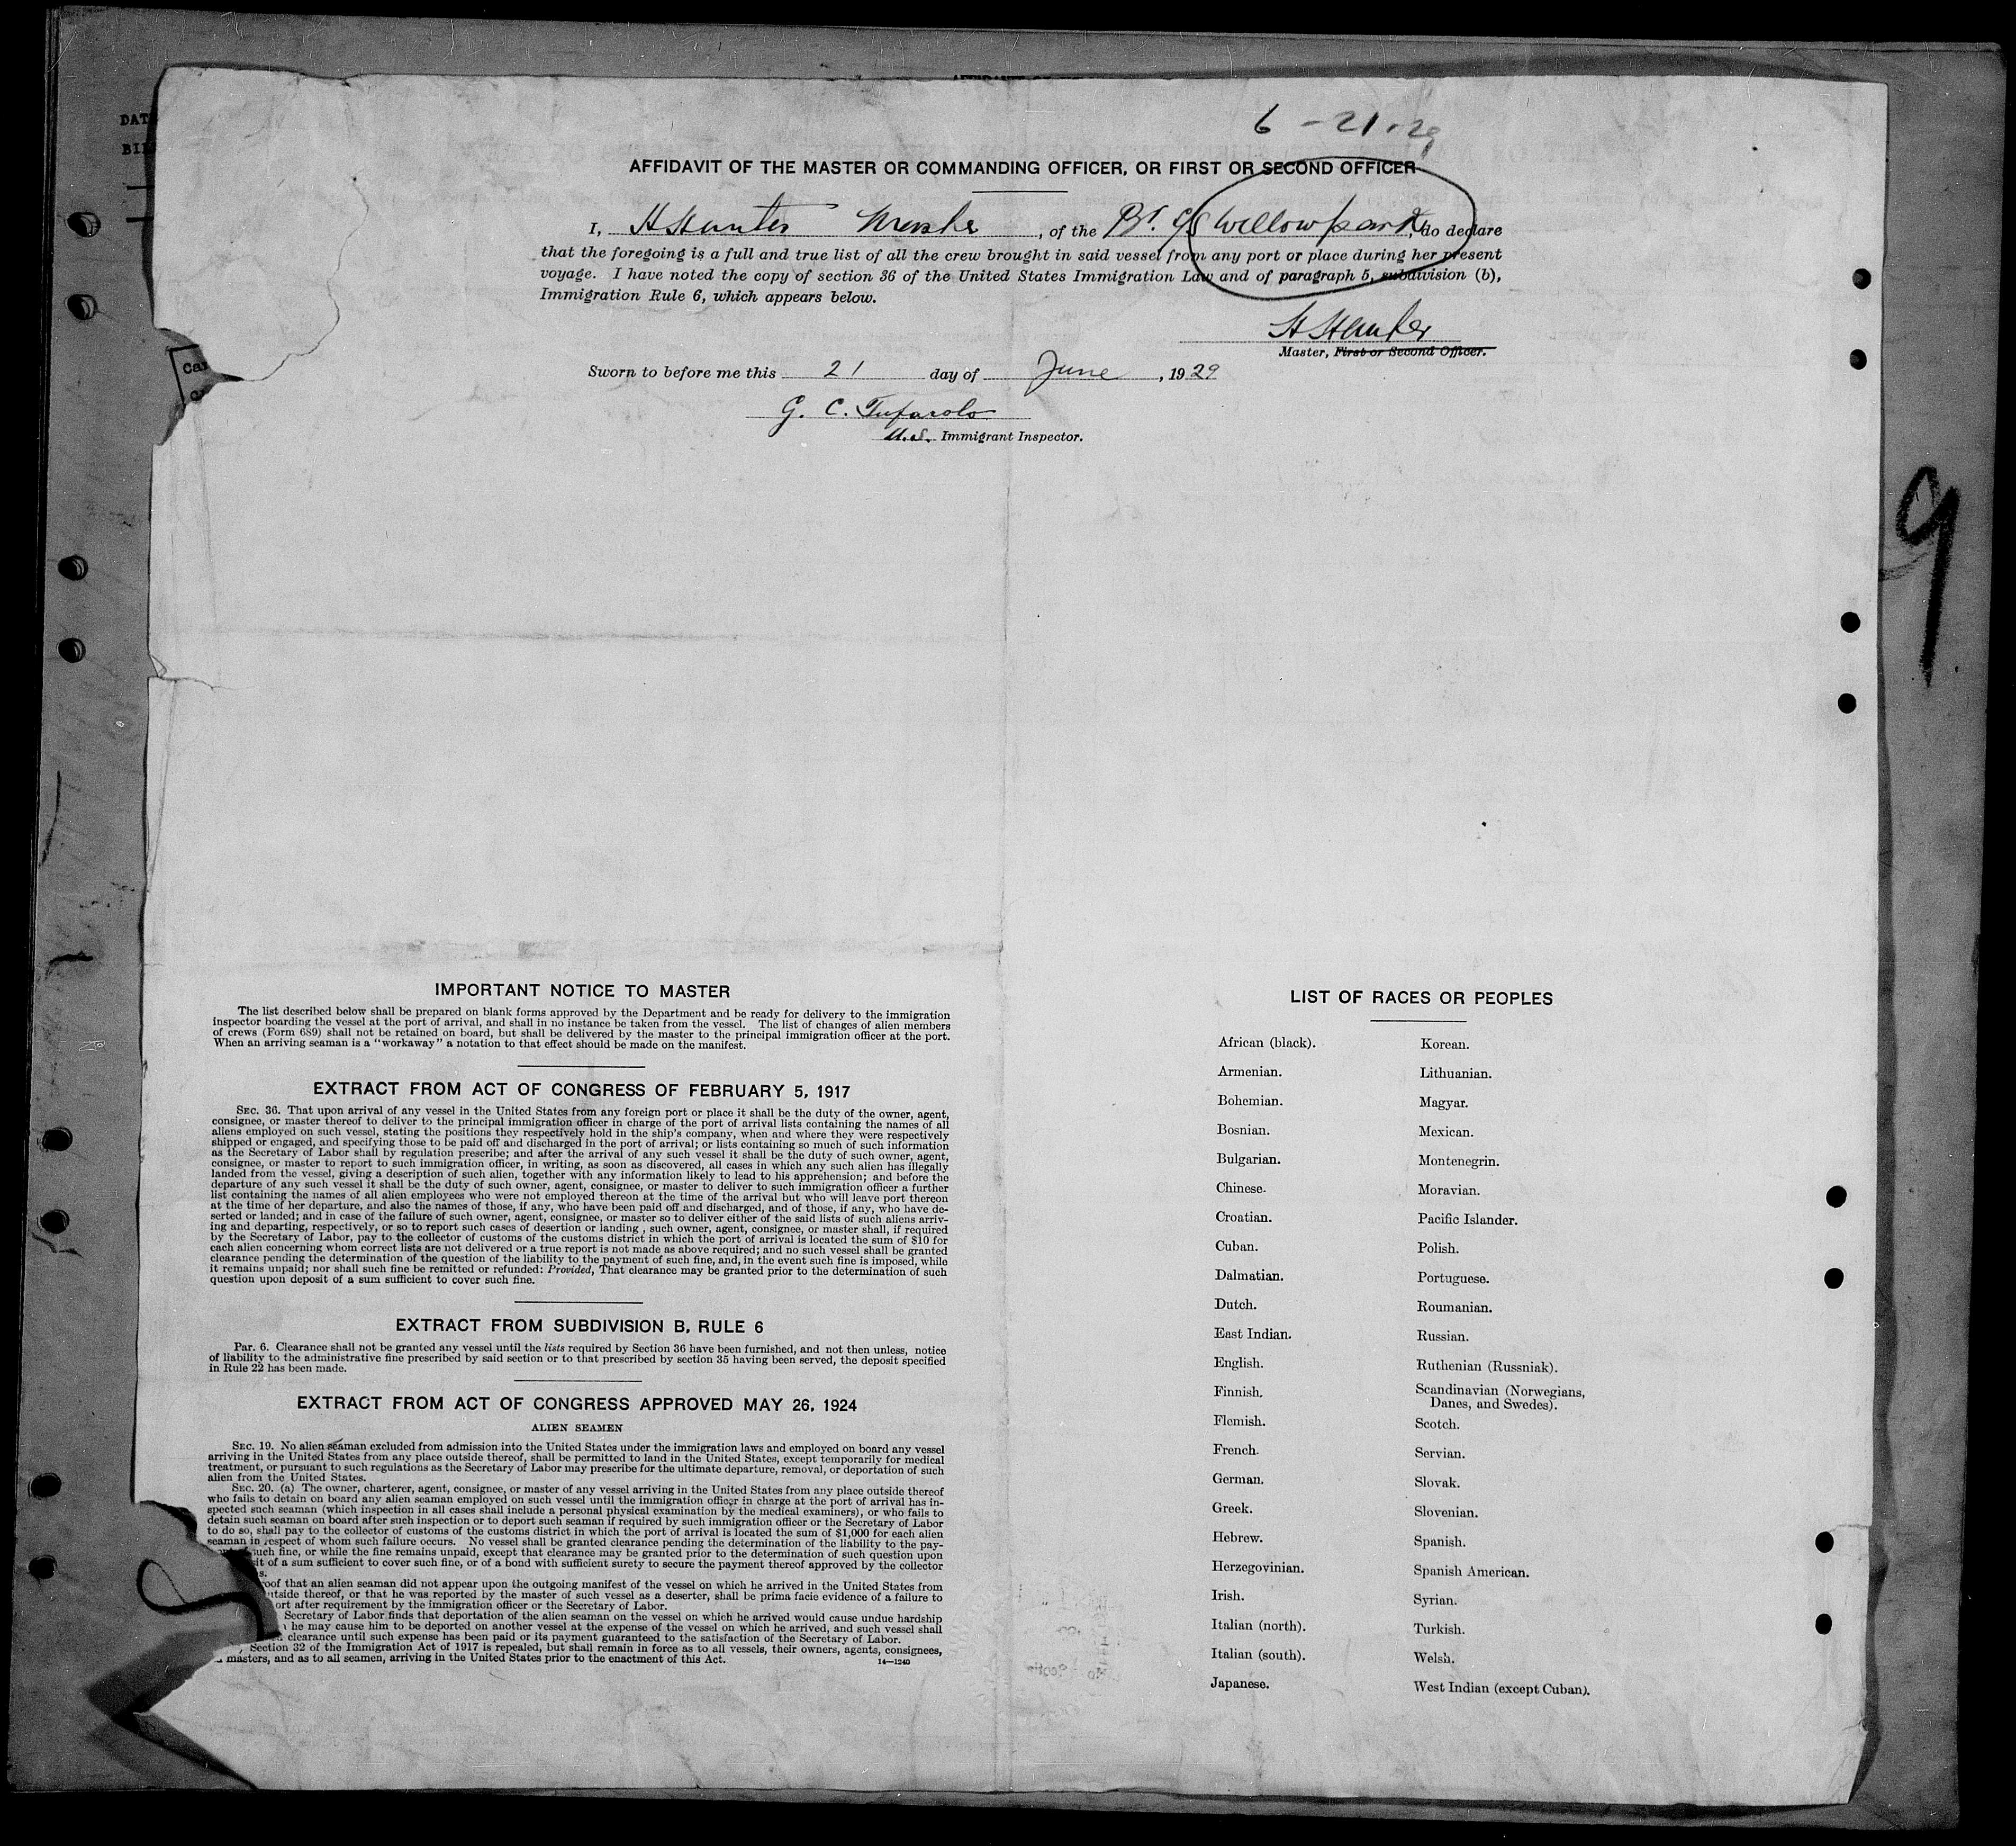 DAT
BI
6 - 21 - 29
AFFIDAVIT OF THE MASTER OR COMMANDING OFFICER, OR FIRST OR SECOND OFFICER
I, H Hunter Master, of the Br. S/S Willowpark, do declare
that the foregoing is a full and true list of all the crew brought in said vessel from any port or place during her present
voyage. I have noted the copy of section 36 of the United States Immigration Law and of paragraph 5, subdivision (b),
Immigration Rule 6, which appears below.
H Hunter
Master, First or Second Officer.
Sworn to before me this 21 day of June, 1929
G. C. Tufarolo
U.S. Immigrant Inspector.
Ca
9
IMPORTANT NOTICE TO MASTER
The list described below shall be prepared on blank forms approved by the Department and be ready for delivery to the immigration
inspector boarding the vessel at the port of arrival, and shall in no instance be taken from the vessel. The list of changes of alien members
of crews (Form 689) shall not be retained on board, but shall be delivered by the master to the principal immigration officer at the port.
When an arriving seaman is a "workaway" a notation to that effect should be made on the manifest.
EXTRACT FROM ACT OF CONGRESS OF FEBRUARY 5, 1917
SEC. 36. That upon arrival of any vessel in the United States from any foreign port or place it shall be the duty of the owner, agent,
consignee, or master thereof to deliver to the principal immigration officer in charge of the port of arrival lists containing the names of all
aliens employed on such vessel, stating the positions they respectively hold in the ship's company, when and where they were respectively
shipped or engaged, and specifying those to be paid off and discharged in the port of arrival; or lists containing so much of such information
as the Secretary of Labor shall by regulation prescribe; and after the arrival of any such vessel it shall be the duty of such owner, agent,
consignee, or master to report to such immigration officer, in writing, as soon as discovered, all cases in which any such alien has illegally
landed from the vessel, giving a description of such alien, together with any information likely to lead to his apprehension; and before the
departure of any such vessel it shall be the duty of such owner, agent, consignee, or master to deliver to such immigration officer a further
list containing the names of all alien employees who were not employed thereon at the time of the arrival but who will leave port thereon
at the time of her departure, and also the names of those, if any, who have been paid off and discharged, and of those, if any, who have de-
serted or landed; and in case of the failure of such owner, agent, consignee, or master so to deliver either of the said lists of such aliens arriv-
ing and departing, respectively, or so to report such cases of desertion or landing , such owner, agent, consignee, or master shall, if required
by the Secretary of Labor, pay to the collector of customs of the customs district in which the port of arrival is located the sum of $10 for
each alien concerning whom correct lists are not delivered or a true report is not made as above required; and no such vessel shall be granted
clearance pending the determination of the question of the liability to the payment of such fine, and, in the event such fine is imposed, while
it remains unpaid; nor shall such fine be remitted or refunded: Provided, That clearance may be granted prior to the determination of such
question upon deposit of a sum sufficient to cover such fine.
EXTRACT FROM SUBDIVISION B, RULE 6
Par. 6. Clearance shall not be granted any vessel until the lists required by Section 36 have been furnished, and not then unless, notice
of liability to the administrative fine prescribed by said section or to that prescribed by section 35 having been served, the deposit specified
in Rule 22 has been made.
EXTRACT FROM ACT OF CONGRESS APPROVED MAY 26, 1924
ALIEN SEAMEN
SEC. 19. No alien seaman excluded from admission into the United States under the immigration laws and employed on board any vessel
arriving in the United States from any place outside thereof, shall be permitted to land in the United States, except temporarily for medical
treatment, or pursuant to such regulations as the Secretary of Labor may prescribe for the ultimate departure, removal, or deportation of such
alien from the United States.
SEC. 20. (a) The owner, charterer, agent, consignee, or master of any vessel arriving in the United States from any place outside thereof
who fails to detain on board any alien seaman employed on such vessel until the immigration officer in charge at the port of arrival has in-
spected such seaman (which inspection in all cases shall include a personal physical examination by the medical examiners), or who fails to
detain such seaman on board after such inspection or to deport such seaman if required by such immigration officer or the Secretary of Labor
to do so, shall pay to the collector of customs of the customs district in which the port of arrival is located the sum of $1,000 for each alien
seaman in respect of whom such failure occurs. No vessel shall be granted clearance pending the determination of the liability to the pay-
such fine, or while the fine remains unpaid, except that clearance may be granted prior to the determination of such question upon
it of a sum sufficient to cover such fine, or of a bond with sufficient surety to secure the payment thereof approved by the collector
s.
roof that an alien seaman did not appear upon the outgoing manifest of the vessel on which he arrived in the United States from
utside thereof, or that he was reported by the master of such vessel as a deserter, shall be prima facie evidence of a failure to
ort after requirement by the immigration officer or the Secretary of Labor.
Secretary of Labor finds that deportation of the alien seaman on the vessel on which he arrived would cause undue hardship
he may cause him to be deported on another vessel at the expense of the vessel on which he arrived, and such vessel shall
clearance until such expense has been paid or its payment guaranteed to the satisfaction of the Secretary of Labor.
Section 32 of the Immigration Act of 1917 is repealed, but shall remain in force as to all vessels, their owners, agents, consignees,
masters, and as to all seamen, arriving in the United States prior to the enactment of this Act.
14—1240
LIST OF RACES OR PEOPLES
African (black).
Armenian.
Bohemian.
Bosnian.
Bulgarian.
Chinese.
Croatian.
Cuban.
Dalmatian.
Dutch.
East Indian.
English.
Finnish.
Flemish.
French.
German.
Greek.
Hebrew.
Herzegovinian.
Irish.
Italian (north).
Italian (south).
Japanese.
Korean.
Lithuanian.
Magyar.
Mexican.
Montenegrin.
Moravian.
Pacific Islander.
Polish.
Portuguese.
Roumanian.
Russian.
Ruthenian (Russniak).
Scandinavian (Norwegians,
Danes, and Swedes).
Scotch.
Servian.
Slovak.
Slovenian.
Spanish.
Spanish American.
Syrian.
Turkish.
Welsh.
West Indian (except Cuban).